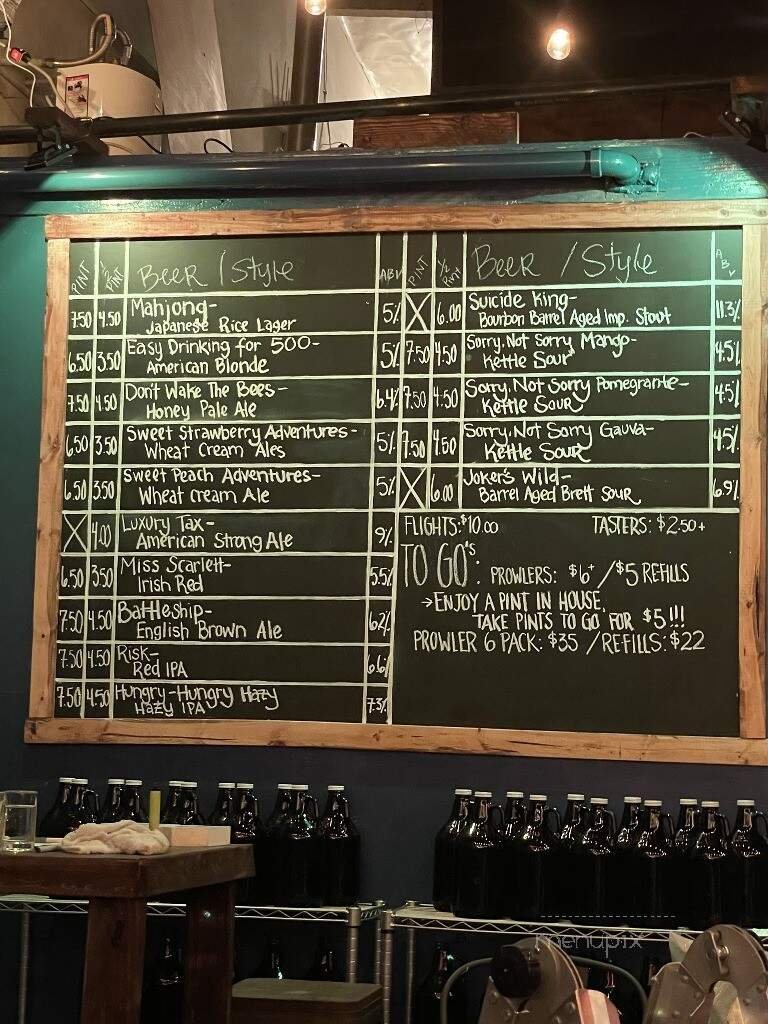 PINT 1/2 PINT Beer / Style ABV
7.50 4.50 Mahjong- 5%
Japanese Rice Lager
6.50 3.50 Easy Drinking for 500- 5%
American Blonde
7.50 4.50 Don't Wake The Bees- 6.4%
Honey Pale Ale
6.50 3.50 Sweet Strawberry Adventures- 5%
Wheat Cream Ales
6.50 3.50 Sweet Peach Adventures- 5%
Wheat Cream Ale
X 4.00 Luxury Tax- 9%
American Strong Ale
6.50 3.50 Miss Scarlett- 5.5%
Irish Red
7.50 4.50 Battleship- 6.2%
English Brown Ale
7.50 4.50 Risk- 6.6%
Red IPA
7.50 4.50 Hungry-Hungry Hazy 7.3%
Hazy IPA
PINT 1/2 PINT Beer / Style ABV
X 6.00 Suicide King- 11.3%
Bourbon Barrel Aged Imp. Stout
7.50 4.50 Sorry, Not Sorry Mango- 4.5%
Kettle Sour
7.50 4.50 Sorry, Not Sorry Pomegranate- 4.5%
Kettle Sour
7.50 4.50 Sorry, Not Sorry Gauva- 4.5%
Kettle Sour
X 6.00 Joker's Wild- 6.9%
Barrel Aged Brett Sour
FLIGHTS: $10.00 TASTERS: $2.50+
TO GO's: PROWLERS: $6+ / $5 REFILLS
→ ENJOY A PINT IN HOUSE,
TAKE PINTS TO GO FOR $5!!!
PROWLER 6 PACK: $35 / REFILLS: $22
menupix